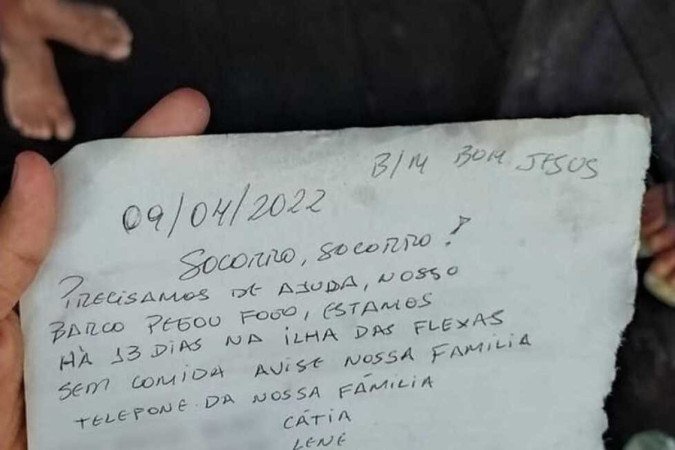 B/M BOM JESUS
09/04/2022
SOCORRO, SOCORRO!
PRECISAMOS DE AJUDA, NOSSO
BARCO PEGOU FOGO, ESTAMOS
HÀ 13 DIAS NA ILHA DAS FLEXAS
SEM COMIDA AVISE NOSSA FAMILIA
TELEPONE DA NOSSA FÁMILIA
CÁTIA
LENE